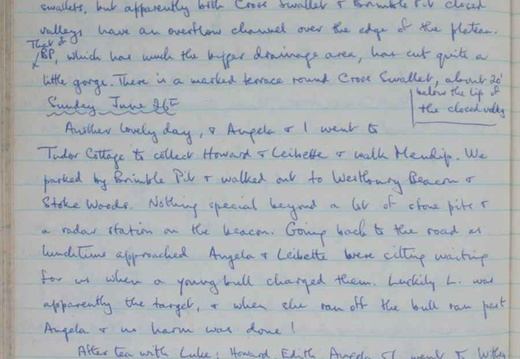 swallets, but apparently both Cross Swallet & Brimble Pit closed
valleys have an overflow channel over the edge of the plateau.
That of
BP, which has much the bigger drainage area, has cut quite a
little gorge. There is a marked terrace round Cross Swallet, about 20'
below the lip of
the closed valley
Sunday June 26th
Another lovely day, & Angela & I went to
Tudor Cottage to collect Howard & Leibette & walk Mendip. We
parked by Brimble Pit & walked out to Westbury Beacon &
Stoke Woods. Nothing special beyond a lot of stone pits &
a radar station on the beacon. Going back to the road as
lunchtime approached Angela & Leibette were sitting waiting
for us when a young bull charged them. Luckily L. was
apparently the target, & when she ran off the bull ran past
Angela & no harm was done!
After tea with Luke; Howard Edith Angela & I went to